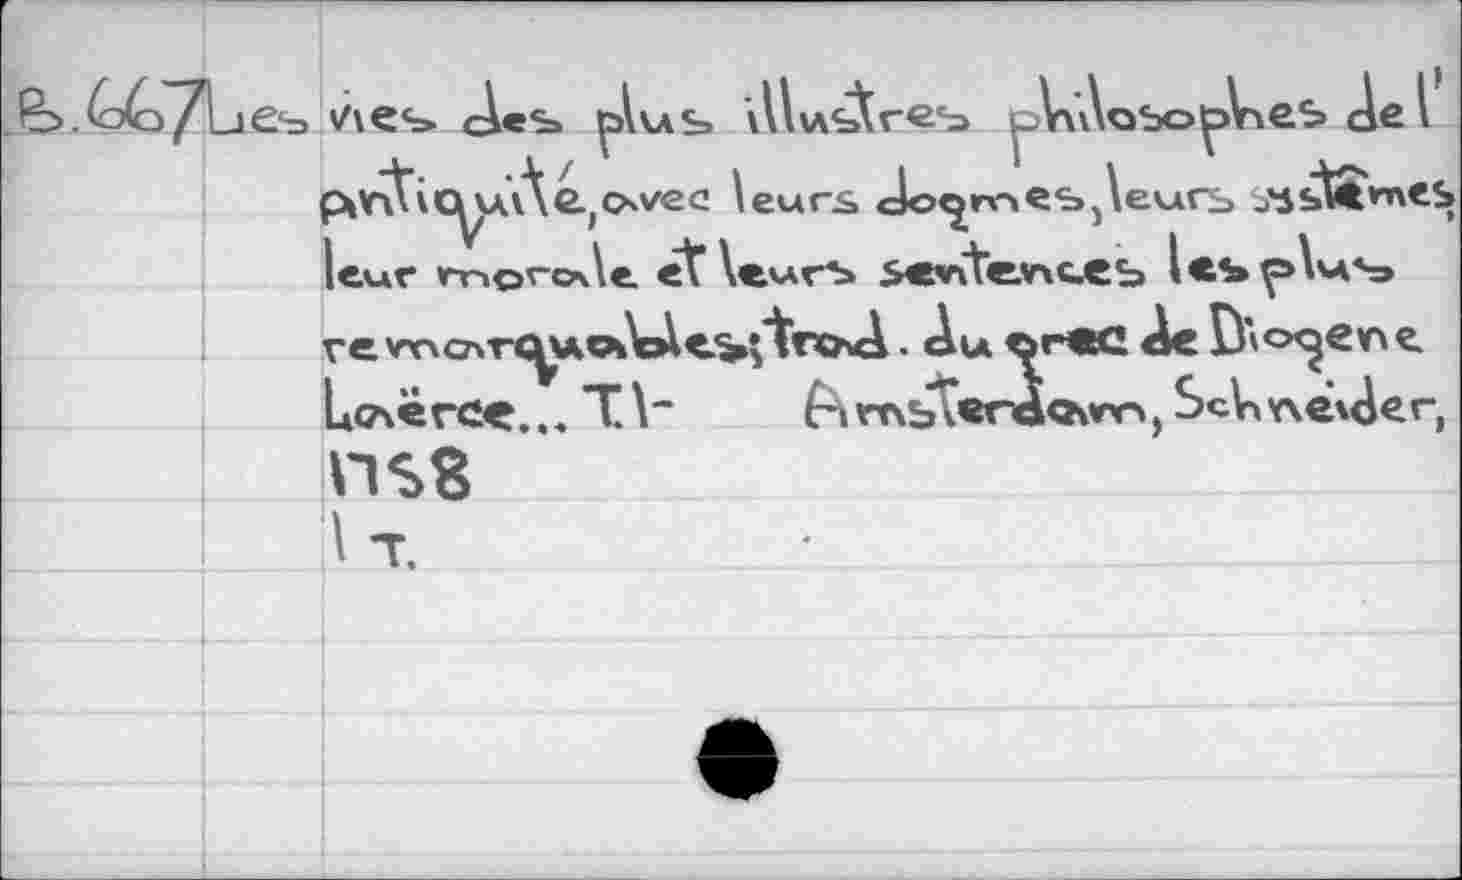 B.667 Les vies des plus illustres philosophes de l'
antiquité, avec leurs dogmes, leurs systêmes,
leur morale et leurs sentences les plus
remarquables; trad. du grec de Diogene
Laërce... T.1- Amsterdam, Schneider,
1758
1 T.